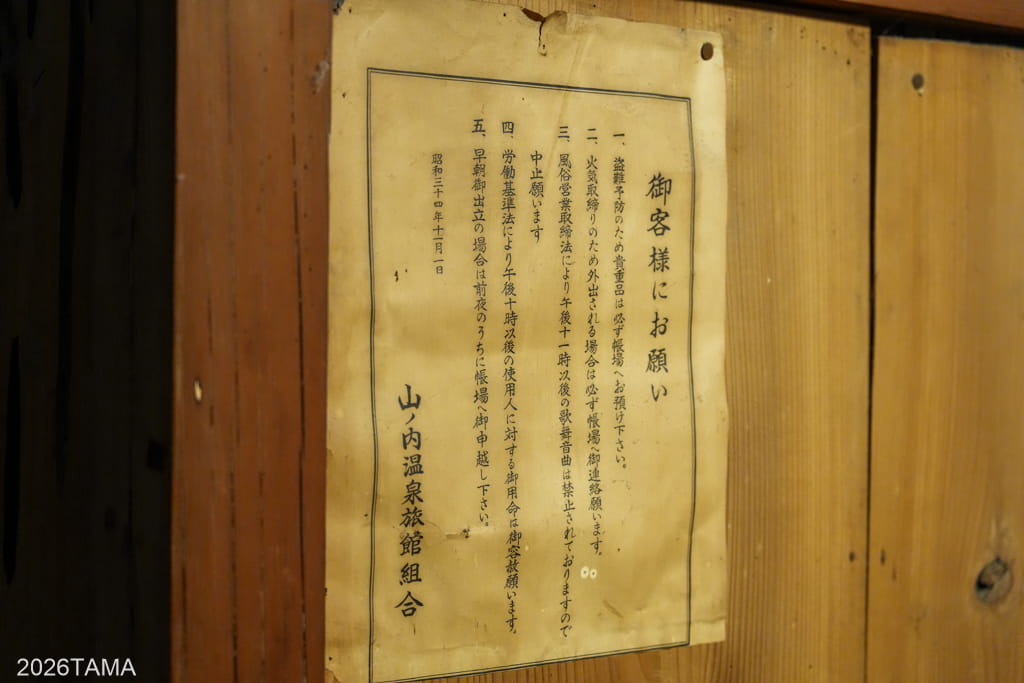 御客様にお願い
一、盗難予防のため貴重品は必ず帳場へお預け下さい。
二、火気取締りのため外出される場合は必ず帳場へ御連絡願います。
三、風俗営業取締法により午後十一時以後の歌舞音曲は禁止されておりますので
中止願います
四、労働基準法により午後十時以後の使用人に対する御用命は御容赦願います。
五、早朝御出立の場合は前夜のうちに帳場へ御申越し下さい。
昭和三十四年十一月一日
山ノ内温泉旅館組合
2026TAMA